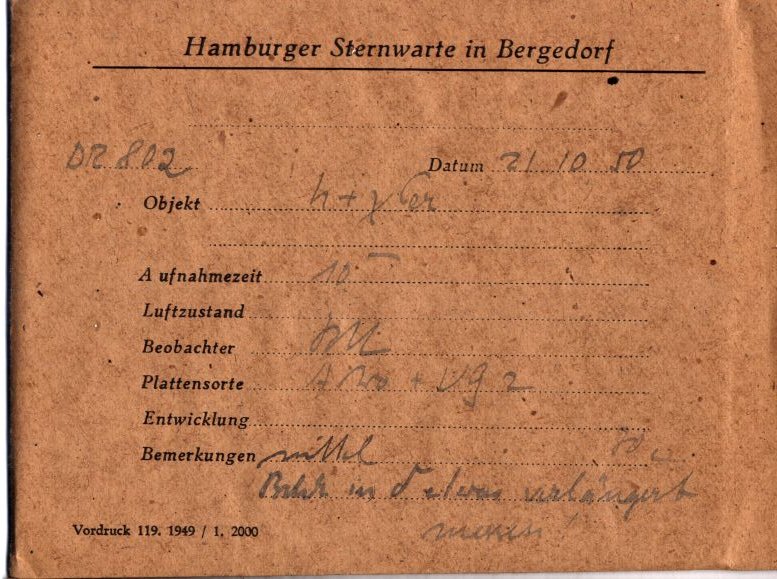 Hamburger Sternwarte in Bergedorf
DR 802 Datum 21 10 50
Objekt h + χ Per
Aufnahmezeit 10
Luftzustand
Beobachter
Plattensorte + UG 2
Entwicklung
Bemerkungen mittel
in δ etwas verlängert
Vordruck 119. 1949 / 1. 2000